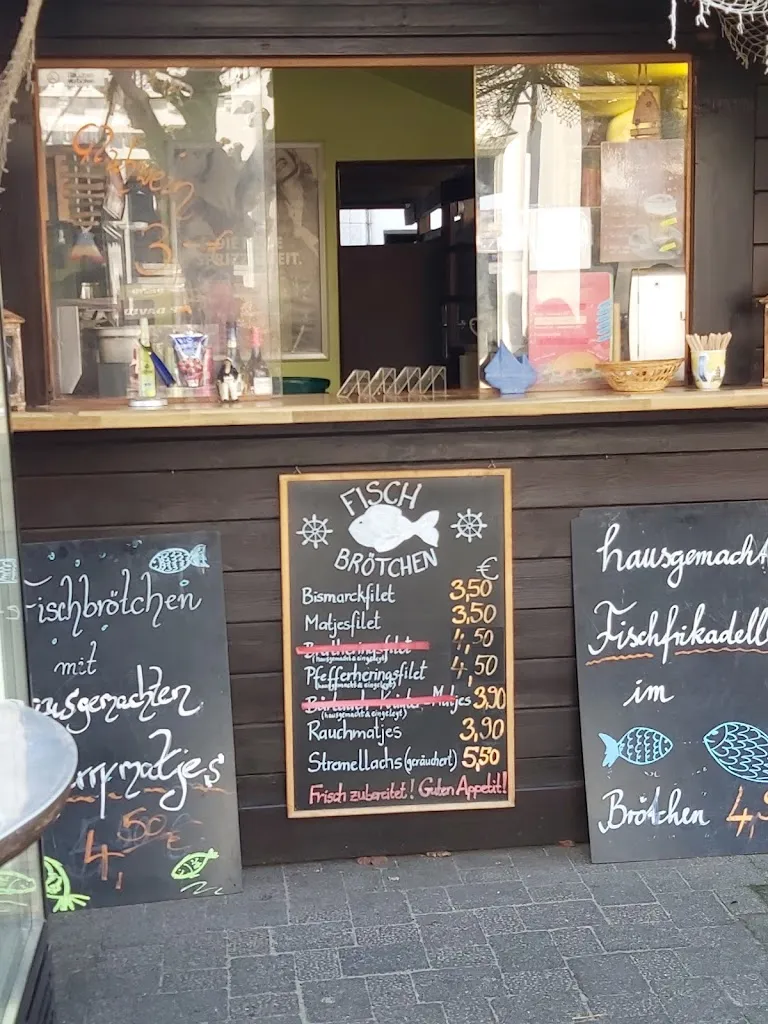 Glühwein
3,-
DIE
SPRITZIGKEIT.
Fischbrötchen
mit
ausgemachten
4,50 €
FISCH
BRÖTCHEN
€
Bismarckfilet 3,50
Matjesfilet 3,50
Bratheringsfilet 4,50
(hausgemacht & eingelegt)
Pfefferheringsfilet 4,50
(hausgemacht & eingelegt)
Kräuter-Matjes 3,90
(hausgemacht & eingelegt)
Rauchmatjes 3,90
Stremellachs (geräuchert) 5,50
Frisch zubereitet! Guten Appetit!
hausgemacht
Fischfrikadell
im
Brötchen 4,5